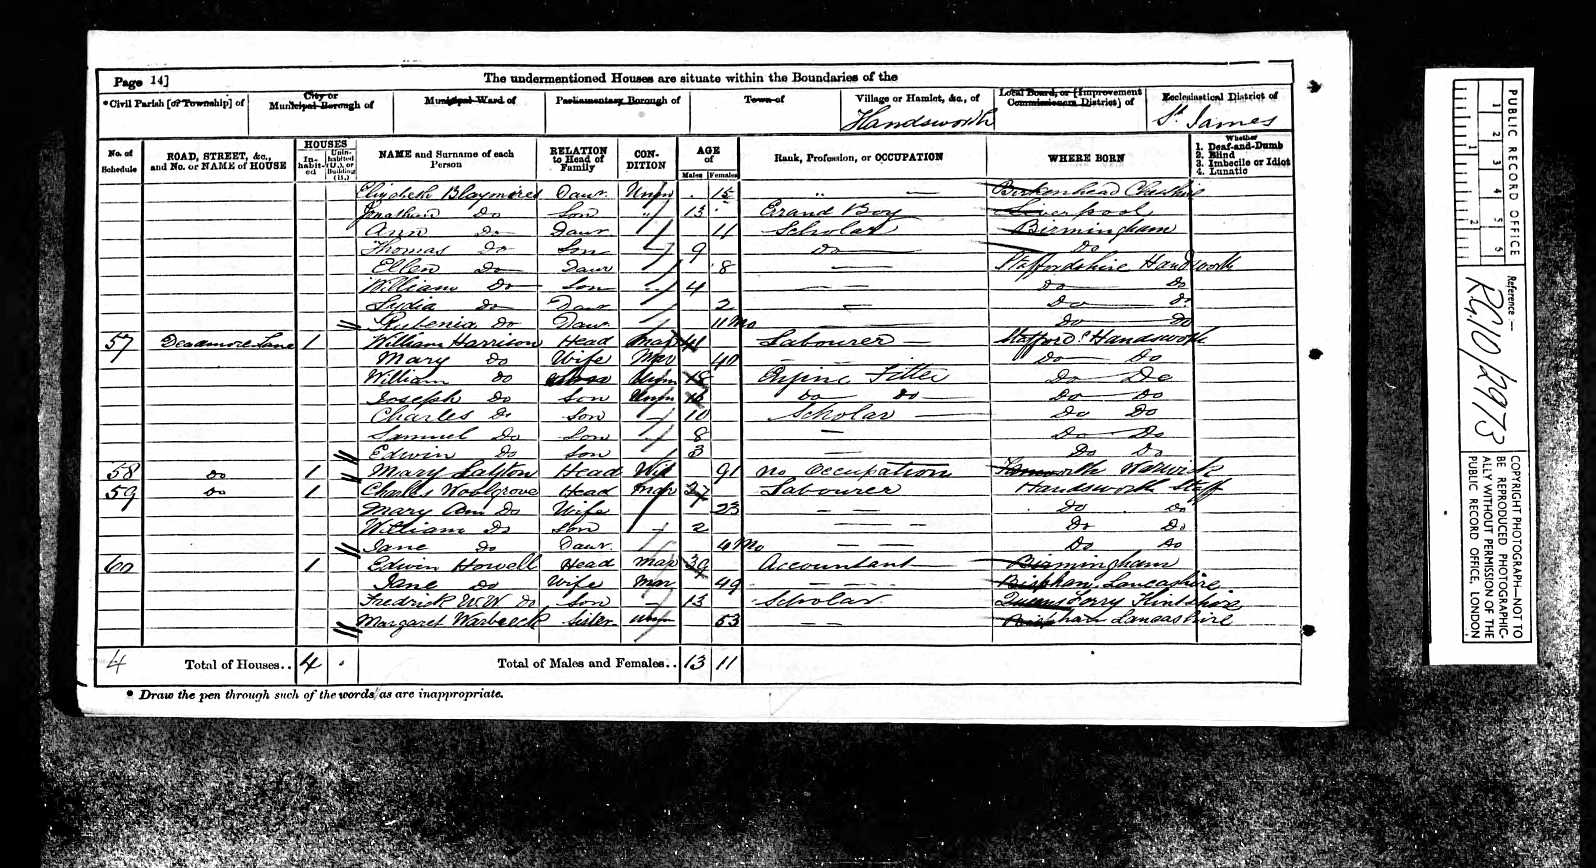 Page 14]
The undermentioned Houses are situate within the Boundaries of the
*Civil Parish [or Township] of
City or Municipal Borough of
Municipal Ward of
Parliamentary Borough of
Town of
Village or Hamlet, &c., of
Handsworth
Local Board, or [Improvement Commissioners District] of
Ecclesiastical District of
St. James
No. of Schedule
ROAD, STREET, &c., and No. or NAME of HOUSE
HOUSES
Inhabited
Uninhabited (U.), or Building (B.)
NAME and Surname of each Person
RELATION to Head of Family
CONDITION
AGE of
Males Females
Rank, Profession, or OCCUPATION
WHERE BORN
Whether
1. Deaf-and-Dumb
2. Blind
3. Imbecile or Idiot
4. Lunatic
Elizabeth Blaymires Daur Unm 15 Birkenhead Cheshire
Jonathan Do Son 13 Errand Boy Liverpool
Ann Do Daur 11 Scholar Birmingham
Thomas Do Son 9 Do Do
Ellen Do Daur 8 Staffordshire Handsworth
William Do Son 4 Do Do
Lydia Do Daur 2 Do Do
Do Daur 11 Mo Do Do
57 Deadmore Lane 1 William Harrison Head Mar 41 Labourer Stafford Handsworth
Mary Do Wife Mar 40 Do Do
William Do Unm 18 Engine Fitter Do Do
Joseph Do Son Unm 16 Do Do Do Do
Charles Do Son 10 Scholar Do Do
Samuel Do Son 8 Do Do
Edwin Do Son 3 Do Do
58 Do 1 Mary Head Wid 91 No Occupation Tamworth Warwick
59 Do 1 Charles Woolgrove Head Mar 27 Labourer Handsworth Staff
Mary Ann Do Wife 23 Do Do
William Do Son 2 Do Do
Jane Do Daur 4 Mo Do Do
60 1 Edwin Howell Head Mar 39 Accountant Birmingham
Jane Do Wife Mar 49 Bispham Lancashire
Fredrick W.W. Do Son 13 Scholar Queens Ferry Flintshire
Margaret Warbreck Sister Unm 53 Bispham Lancashire
4 Total of Houses.. 4 Total of Males and Females.. 13 11
* Draw the pen through such of the words as are inappropriate.
PUBLIC RECORD OFFICE
1 2 3 4 5 6
1 2
Reference :—
RG.10/2973
COPYRIGHT PHOTOGRAPH—NOT TO BE REPRODUCED PHOTOGRAPHICALLY WITHOUT PERMISSION OF THE PUBLIC RECORD OFFICE, LONDON